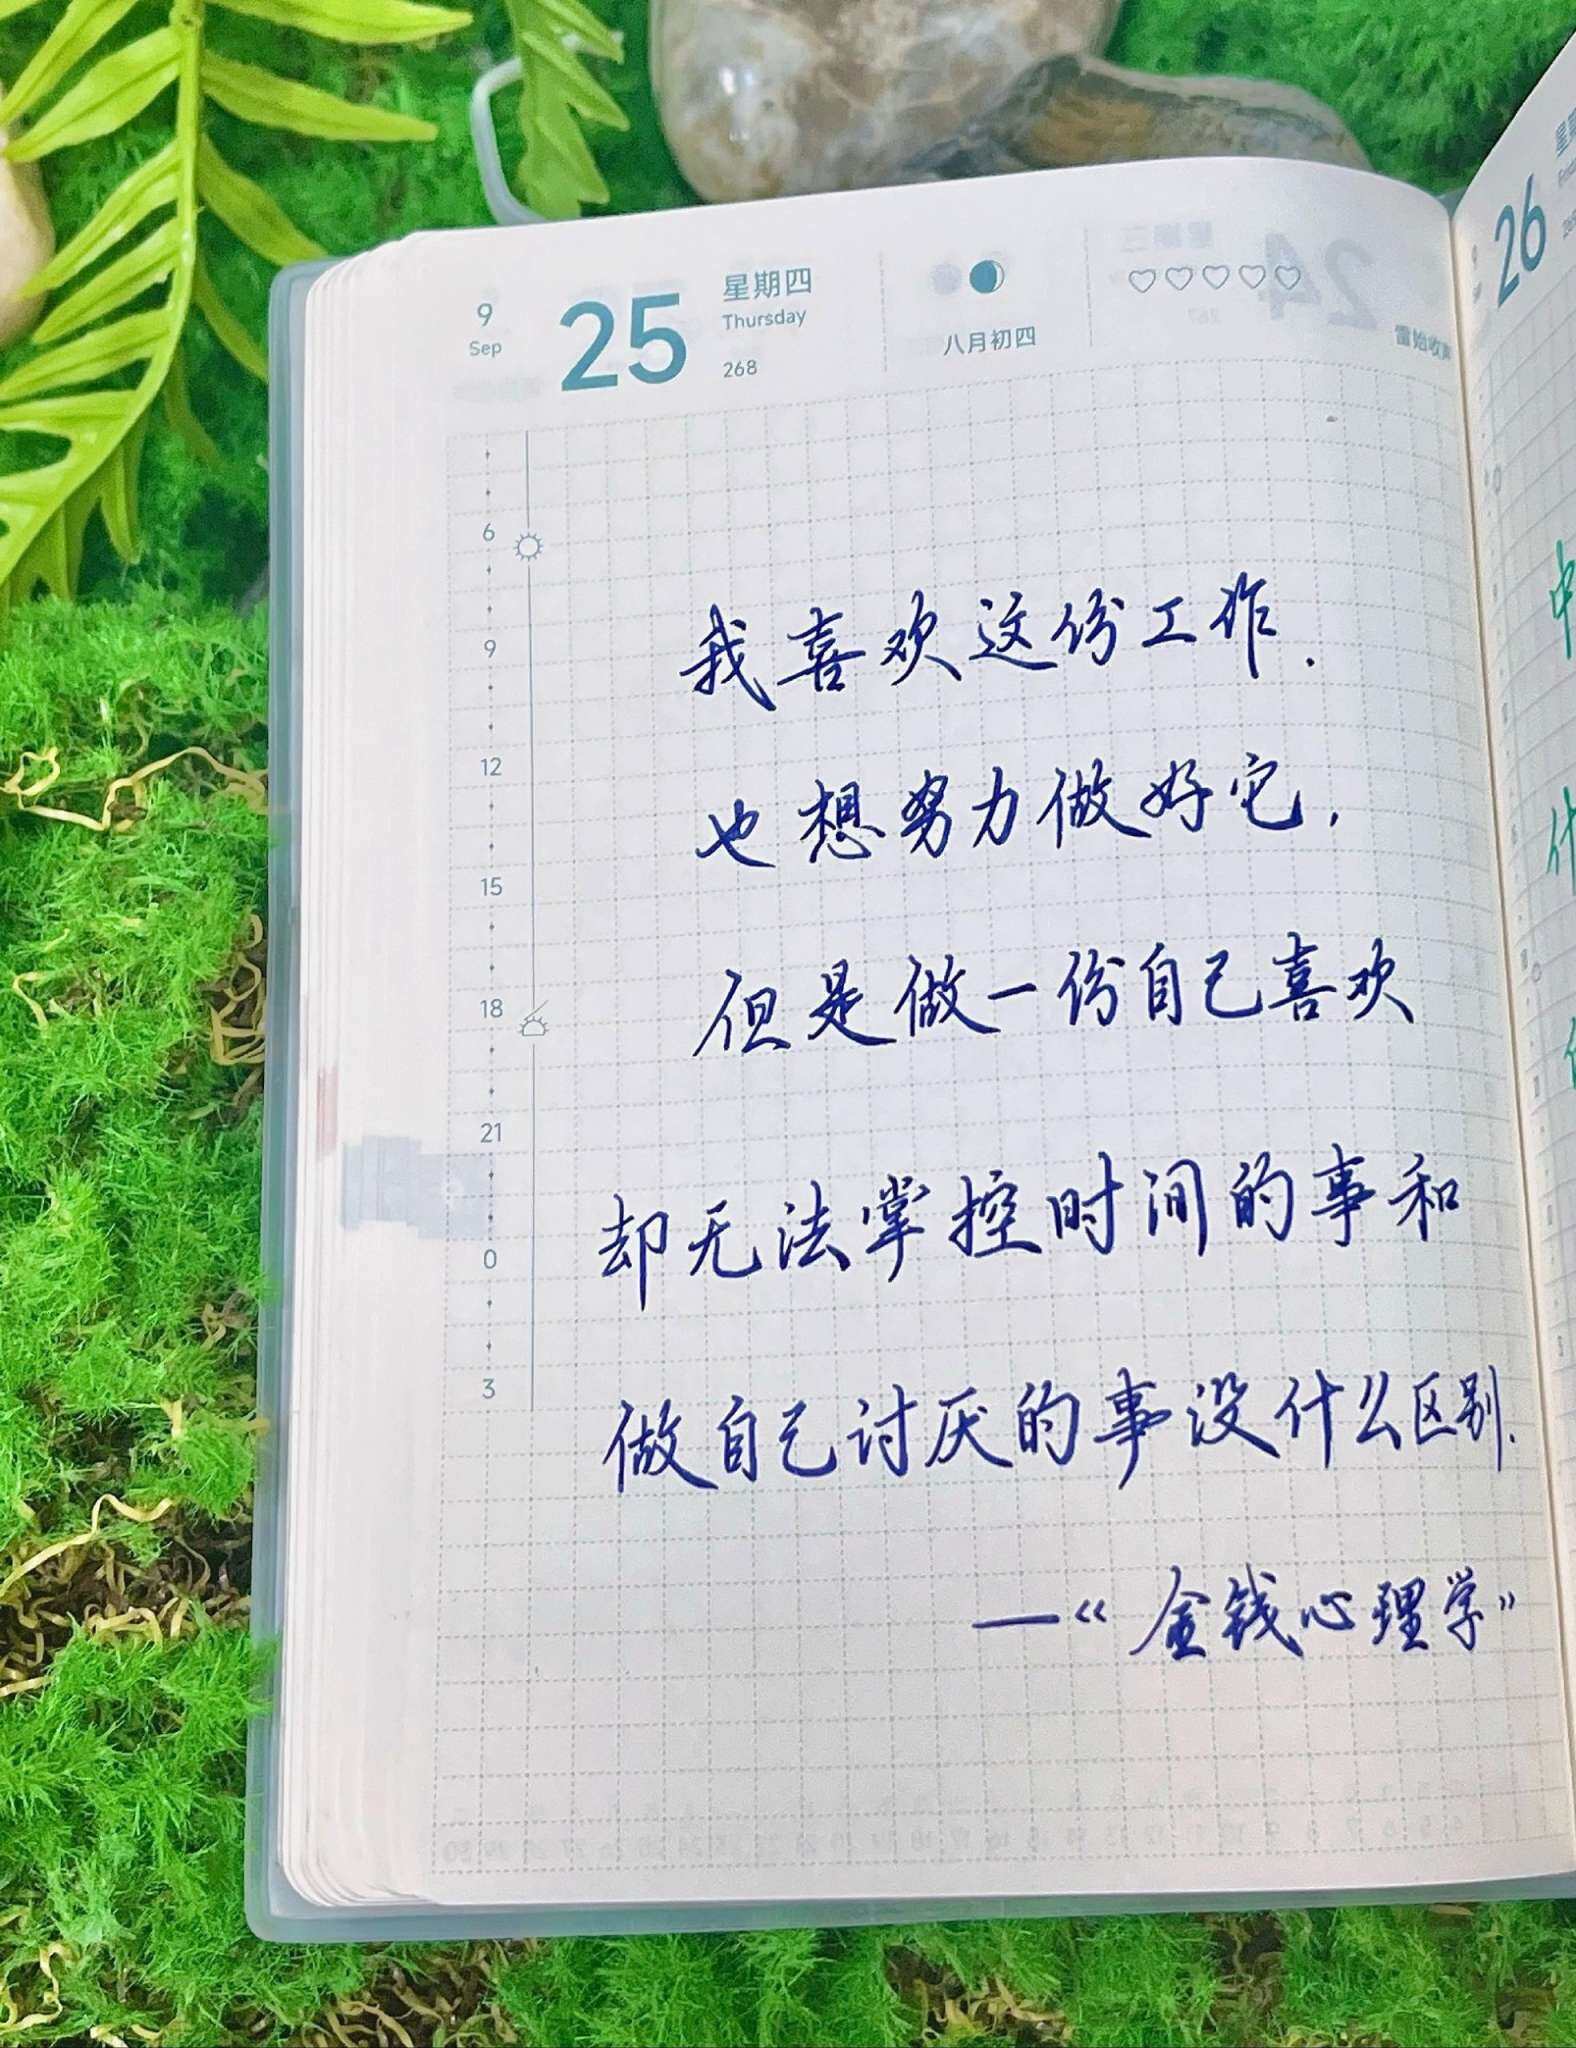 9
Sep
25
星期四
Thursday
268
八月初四
雷始收声
26
6
9
12
15
18
21
0
3
我喜欢这份工作.
也想努力做好它,
但是做一份自己喜欢
却无法掌控时间的事和
做自己讨厌的事没什么区别.
—《金钱心理学》